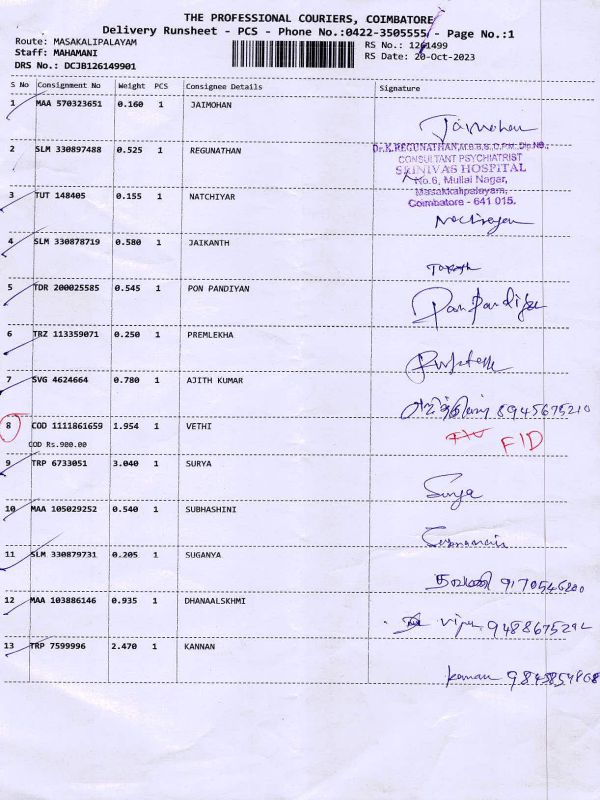 THE PROFESSIONAL COURIERS, COIMBATORE
Delivery Runsheet - PCS - Phone No.:0422-3505555/ - Page No.:1
Route: MASAKALIPALAYAM RS No.: 1261499
Staff: MAHAMANI RS Date: 20-Oct-2023
DRS No.: DCJB126149901
S No Consignment No Weight PCS Consignee Details Signature
1 MAA 570323651 0.160 1 JAIMOHAN
Jaimohan
2 SLM 330897488 0.525 1 REGUNATHAN
Dr.K.REGUNATHAN,M.B.B.S.,D.P.M.,Dip.NB.,
CONSULTANT PSYCHIATRIST
SRINIVAS HOSPITAL
No.6, Mullai Nagar,
Masakkalipalayam,
Coimbatore - 641 015.
3 TUT 148405 0.155 1 NATCHIYAR
4 SLM 330878719 0.580 1 JAIKANTH
5 TDR 200025585 0.545 1 PON PANDIYAN
Pon Pandiyan
6 TRZ 113359071 0.250 1 PREMLEKHA
7 SVG 4624664 0.780 1 AJITH KUMAR
8945675210
8 COD 1111861659 1.954 1 VETHI
COD Rs.900.00
FID
9 TRP 6733051 3.040 1 SURYA
Surya
10 MAA 105029252 0.540 1 SUBHASHINI
11 SLM 330879731 0.205 1 SUGANYA
9170546200
12 MAA 103886146 0.935 1 DHANAALSKHMI
13 TRP 7599996 2.470 1 KANNAN
kannan